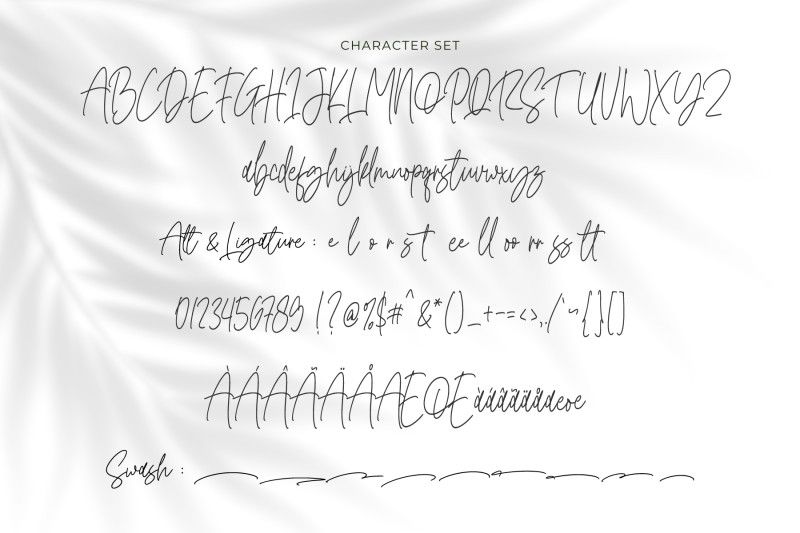 CHARACTER SET
ABCDEFGHIJKLMNOPQRSTUVWXYZ
abcdefghijklmnopqrstuvwxyz
Alt & Ligature : e l o r s t ee ll oo rr ss tt
0123456789 !?@%$#^&*()_+-=<>,./`~{}[]
ÀÁÂÃÄÅÆŒàáâãäåæœ
Swash :